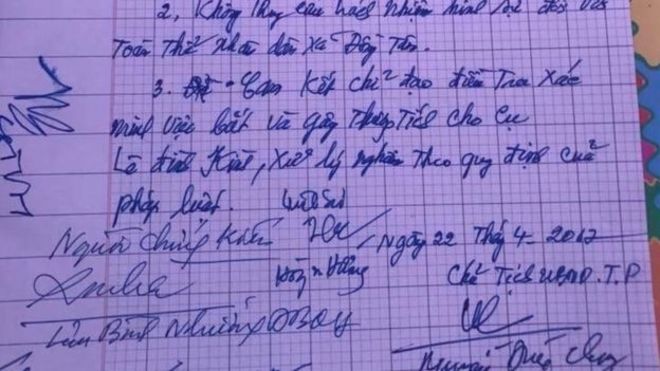 2, Không truy cứu trách nhiệm hình sự đối với
toàn thể nhân dân xã Đồng Tâm.
3. Cam kết chỉ đạo điều tra xác
minh việc bắt và gây thương tích cho cụ
Lê Đình Kình, xử lý nghiêm theo quy định của
pháp luật.
Người chứng kiến
Ngày 22 Thg 4 - 2017
Chủ tịch UBND.T.P
Lưu Bình Nhưỡng ĐBQH